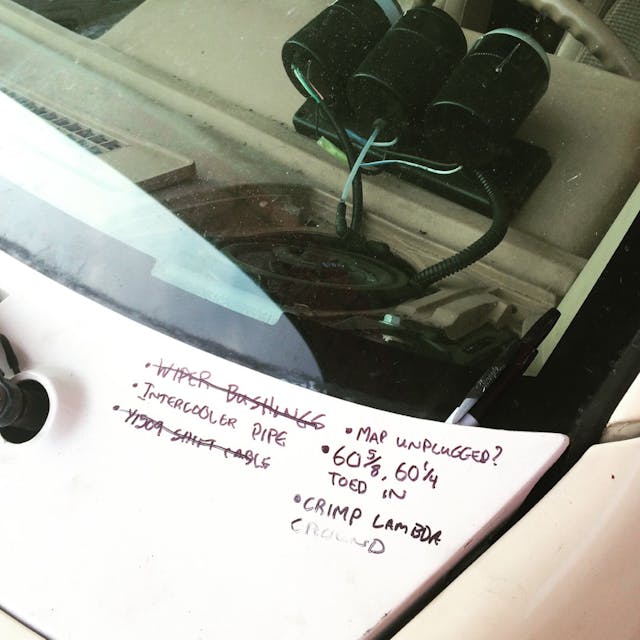 • WIPER BUSHINGS
• INTERCOOLER PIPE
• SHIFT CABLE
• MAP UNPLUGGED?
• 60 5/8, 60 1/4
TOED IN
• CRIMP LAMBDA
GROUND